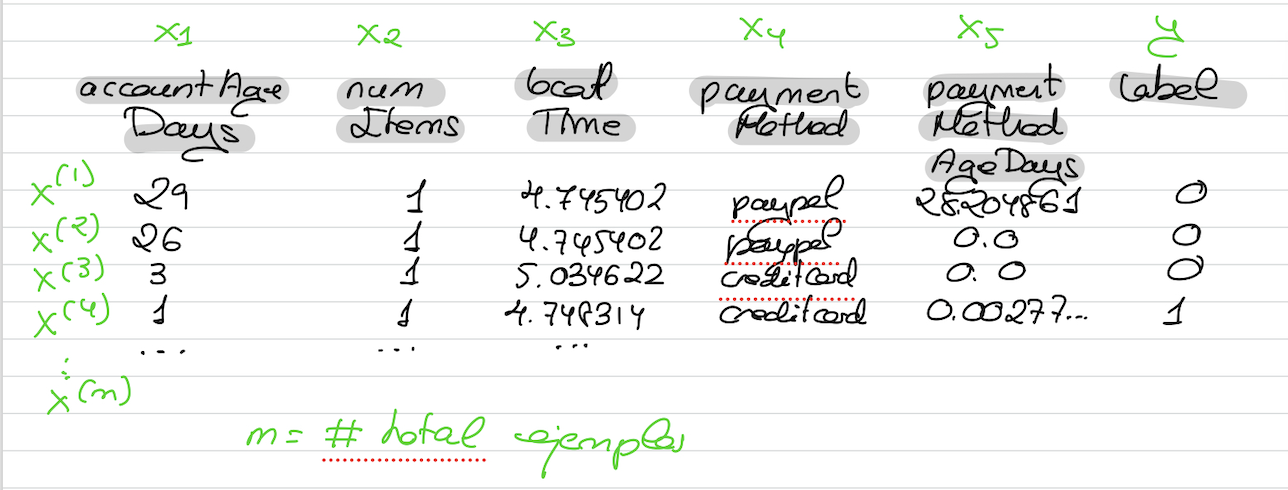 x1 x2 x3 x4 x5 y
accountAge num local payment payment label
Days Items Time Method Method
AgeDays
x(1) 29 1 4.745402 paypal 28.204861 0
x(2) 26 1 4.745402 paypal 0.0 0
x(3) 3 1 5.034622 creditcard 0.0 0
x(4) 1 1 4.748314 creditcard 0.00277... 1
... ... ...
:
x(m)
m = # total ejemplos